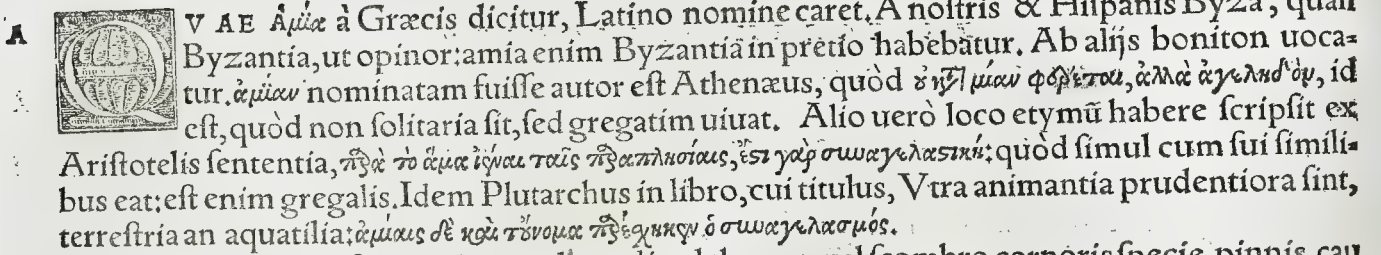 A
QVAE Ἀμία à Græcis dicitur, Latino nomine caret. A noſtris & Hiſpanis Byza, quaſi
Byzantia, ut opinor: amia enim Byzantia in pretio habebatur. Ab alijs boniton uoca⸗
tur. ἀμίαν nominatam fuiſſe autor eſt Athenæus, quòd οὐ κατὰ μίαν φέρεται, ἀλλὰ ἀγεληδὸν, id
eſt, quòd non ſolitaria ſit, ſed gregatim uiuat. Alio uerò loco etymũ habere ſcripſit ex
Ariſtotelis ſententia, παρὰ τὸ ἅμα ἰέναι ταῖς παραπλησίαις, ἔστι γὰρ συναγελαστική: quòd ſimul cum ſui ſimili⸗
bus eat: eſt enim gregalis. Idem Plutarchus in libro, cui titulus, Vtra animantia prudentiora ſint,
terreſtria an aquatilia: ἀμίαις δὲ καὶ τοὔνομα παρέσχηκεν ὁ συναγελασμός.
ſcombro corporis ſpecie pinnis cau